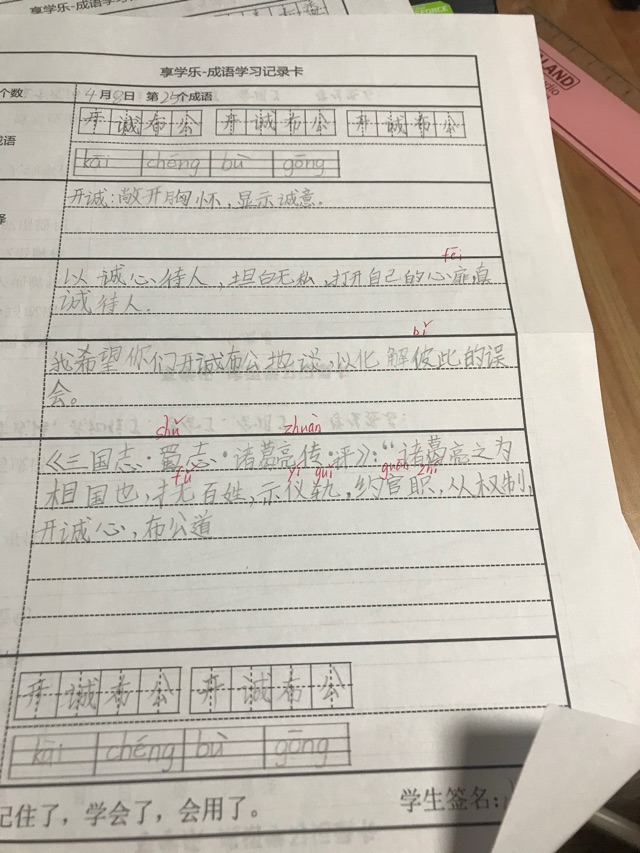 享学乐-成语学习
享学乐-成语学习记录卡
个数 4月8日 第25个成语
开诚布公 开诚布公 开诚布公
成语
kāi chéng bù gōng
开诚:敞开胸怀,显示诚意.
释
fēi
以诚心待人,坦白无私,打开自己的心扉,真
诚待人.
bǐ
我希望你们开诚布公地谈,以化解彼此的误
会。
shǔ zhuàn
《三国志·蜀志·诸葛亮传·评》:“诸葛亮之为
fǔ yí guǐ guān zhí
相国也,抚百姓,示仪轨,约官职,从权制,
开诚心,布公道
开诚布公 开诚布公
kāi chéng bù gōng
记住了,学会了,会用了。 学生签名: